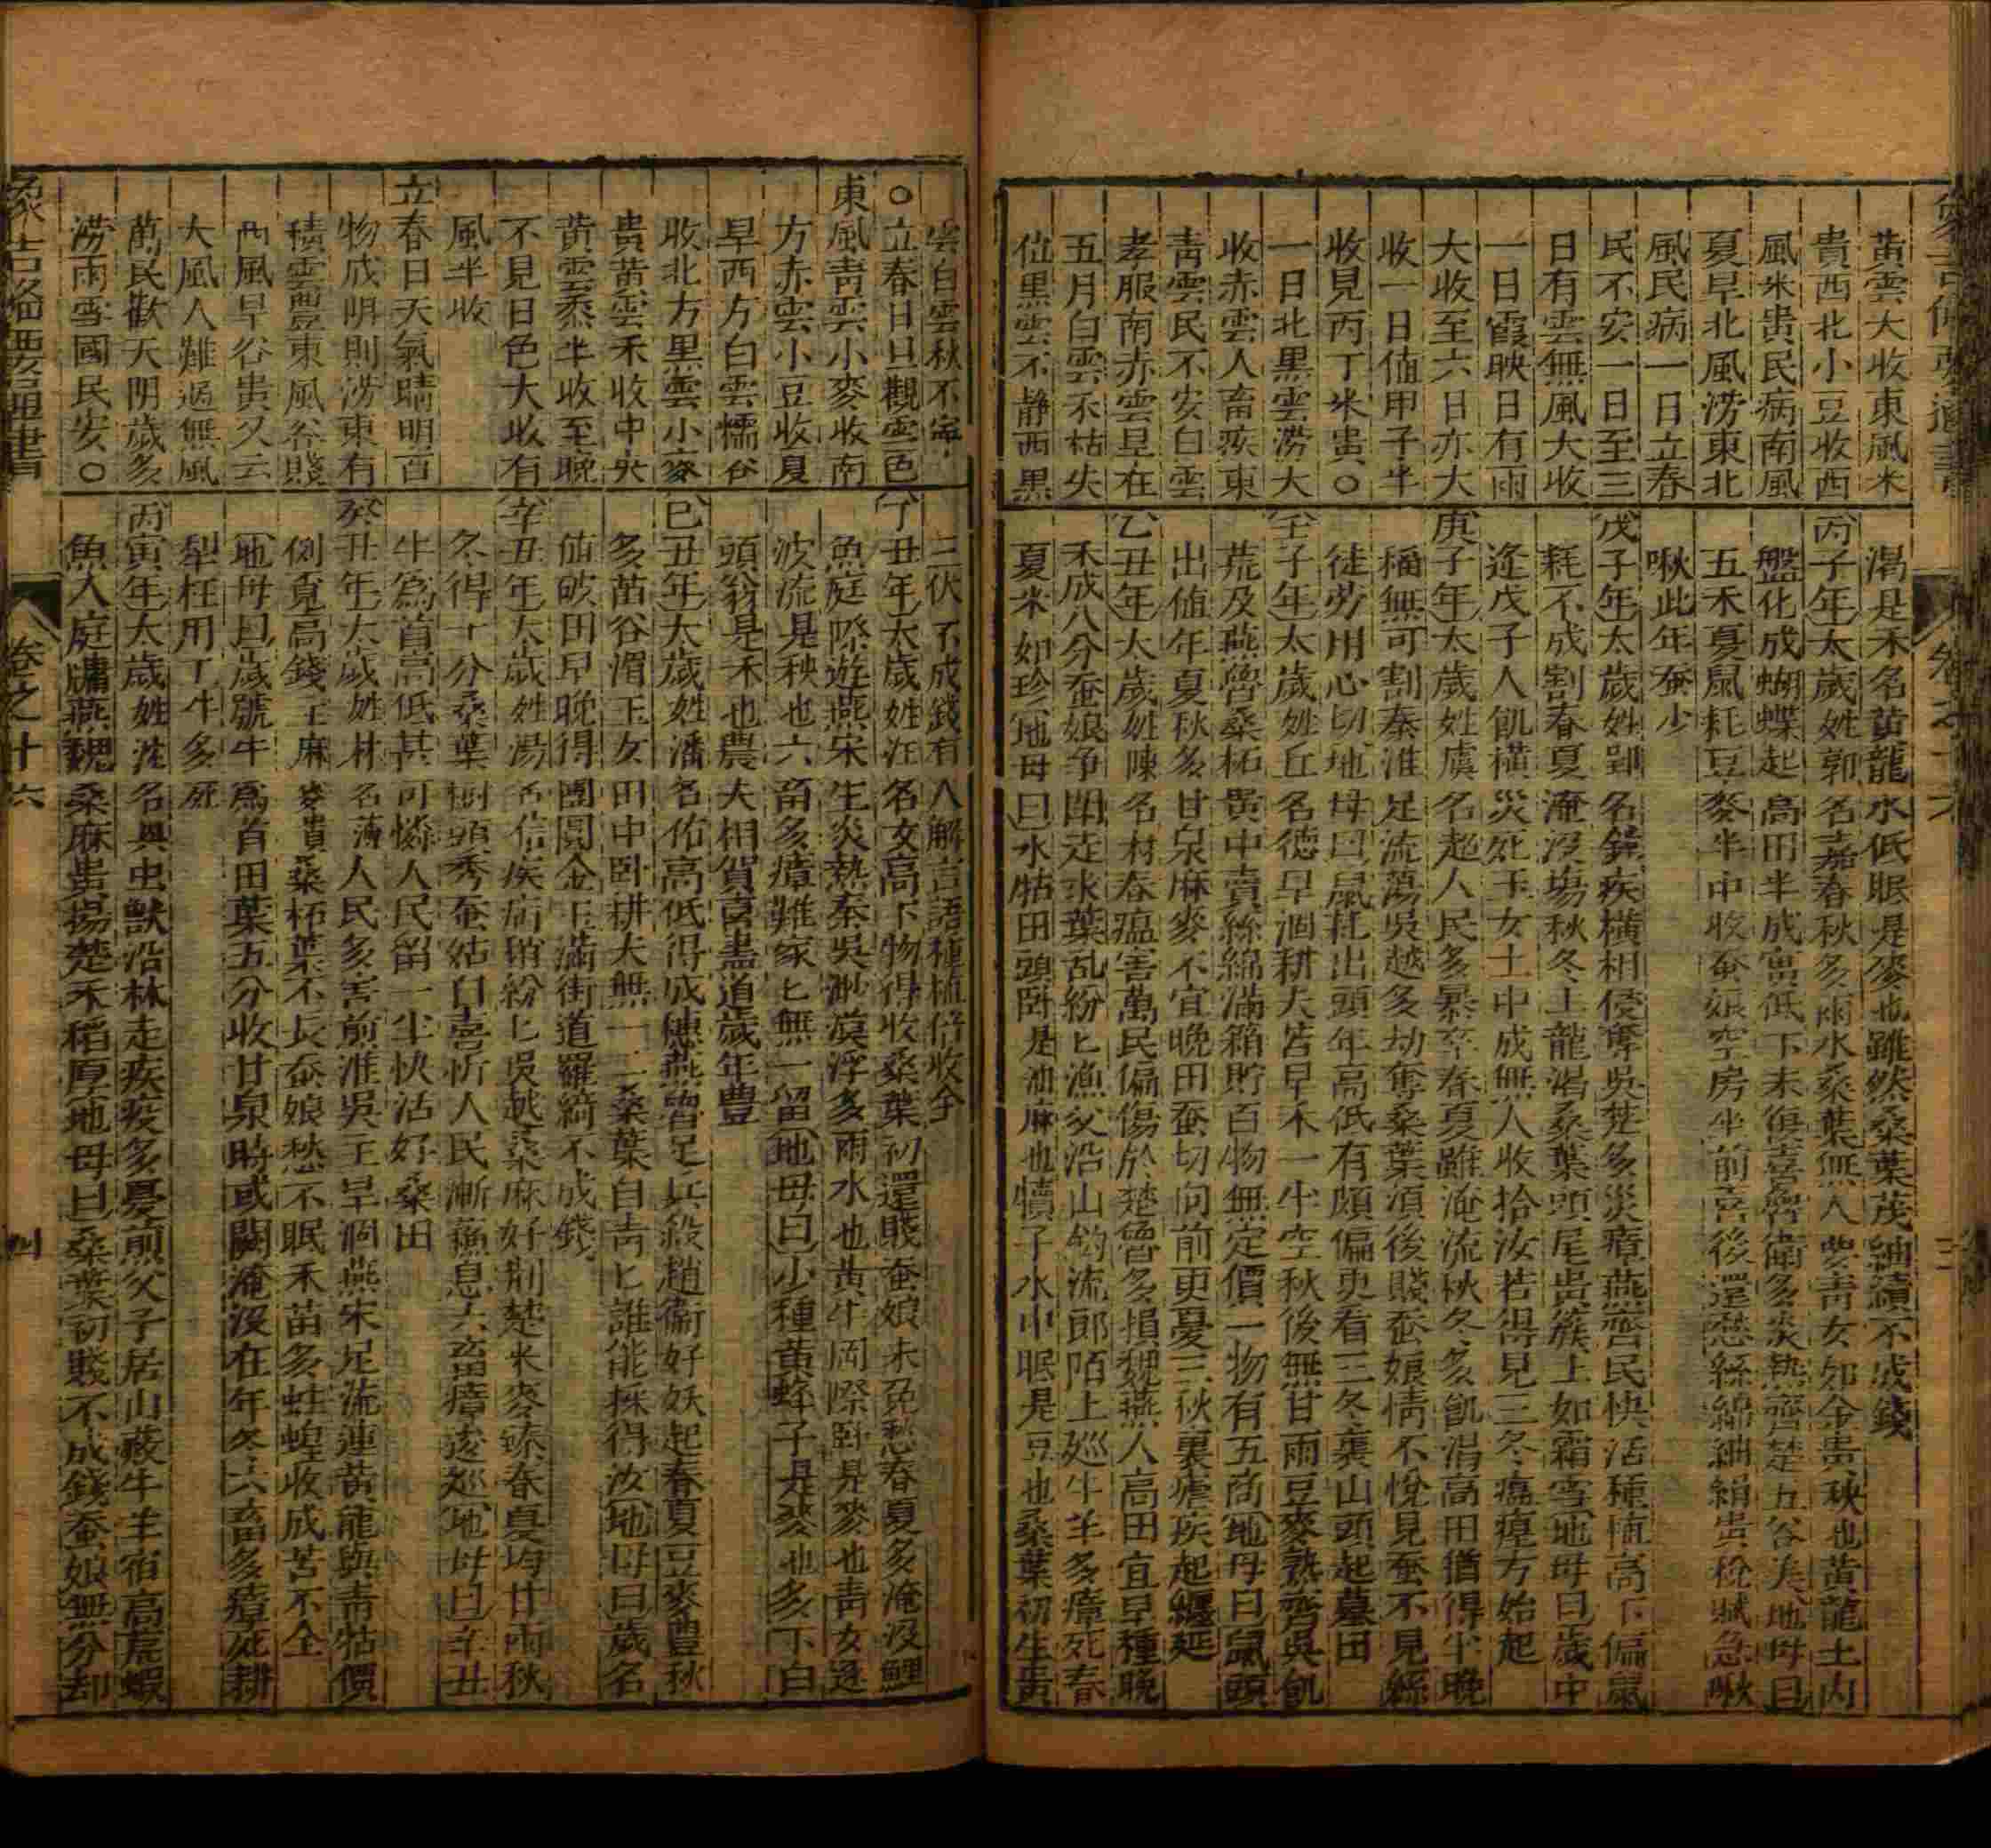 象吉備要通書
卷之十六
三
黃雲大收東風米
貴西北小豆收西
風米貴民病南風
夏旱北風澇東北
風民病一日立春
民不安一日至三
日有雲無風大收
一日霞映日有雨
大收至六日亦大
收一日値甲子半
收見丙丁米貴○
一日北黑雲澇大
收赤雲人畜疾東
靑雲民不安白雲
孝服南赤雲旱在
五月白雲禾枯失
位黑雲不静西黑
渴是禾名黃龍水低眠是麥也雖然桑葉茂紬績不成錢
丙子年太歲姓郭名嘉春秋多雨水桑葉無人要靑女如金貴秧也黃龍土內
盤化成蝴蝶起高田半成實低下未復喜魯衛多炎熱齊楚五谷美地母曰
五禾夏鼠耗豆麥半中收蚕娘空房坐前喜後還愁絲綿紬絹貴稅賦急啾
啾此年蚕少
戊子年太歲姓郢名鎲疾橫相侵奪吳楚多災瘴燕齊民快活種植高下偏鼠
耗不成割春夏淹沒塲秋冬土龍渴桑葉頭尾貴簇上如霜雪地母曰歲中
逢戊子人飢橫災死玉女土中成無人收拾汝若得見三冬瘟瘟方始起
庚子年太歲姓虞名超人民多暴卒春夏雖淹流秋冬多飢渴高田猶得半晚
稻無可割秦淮足流蕩吳越多劫奪桑葉須後賤蚕娘情不悅見蚕不見絲
徒劳用心切地母曰鼠耗出頭年高低有頗偏更看三冬裏山頭起墓田
壬子年太歲姓丘名德旱涸耕夫苦早禾一半空秋後無甘雨豆麥熟齊吳飢
荒及燕魯桑柘貴中賣絲綿滿箱貯百物無定價一物有五啇地母曰鼠頭
出値年夏秋多甘泉麻麥不宜晚田蚕切向前更憂三秋裏瘧疾起纏延
乙丑年太歲姓陳名材春瘟害萬民偏傷於楚魯多損魏燕人高田宜早種晚
禾成八分蚕娘争閗走求葉乱紛匕漁父沿山釣流郎陌上廵牛羊多瘴死春
夏米如珍地母曰水牯田頭卧是油麻也犢子水中眠是豆也桑葉初生貴
雲白雲秋不寧
○立春日且觀雲色
東風靑雲小麥收南
方赤雲小豆收夏
旱西方白雲懦谷
收北方黒雲小麥
貴黃雲禾收中央
黃雲黍半收至晚
不見日色大收有
風半收
立春日天氣晴明百
物成明則澇東有
積雲豐東風谷賤
西風旱谷貴又云
大風人難過無風
萬民歡天明歲多
澇雨雪國民安○
三伏不成錢有人解言語種植倍收全
丁丑年太歲姓汪名文高下物得收桑葉初還賤蚕娘未免愁春夏多淹沒鯉
魚庭際遊燕宋生炎熱秦吳渺漠浮多雨水也黃牛岡際卧是麥也靑女逐
波流是秧也六畜多瘴難家匕無一留地母曰少種黃蜂子是麥也多下白
頭翁是禾也農夫相賀喜盡道歲年豊
巳丑年太歲姓潘名佑高低得成穗燕魯足兵殺趙衞好妖起春夏豆麥豊秋
多苗谷渭玉女田中卧耕夫無一二桑葉自靑匕誰能採得汝地母曰歲名
値破田早晚得團圓金玉滿街道羅綺不成錢
辛丑年太歲姓湯名信疾病稍紛匕吳越桑麻好荆楚米麥臻春夏均甘雨秋
冬得十分桑葉樹頭秀蚕姑自喜忻人民漸蘓息六畜瘴逡廵地母曰辛丑
牛爲首高低甚可憐人民留一半快活好桑田
癸丑年太歲姓林名薄人民多害煎淮吳主旱涸燕宋足流連黃龍與靑牯價
例覓高錢玉麻麥貴桑柘葉不長蚕娘愁不眠禾苗多蛀蝗收成苦不全
地母曰歲號牛爲首田葉五分收甘泉時或闕淹沒在年冬六畜多瘴死耕
犁枉用工牛多死
丙寅年太歲姓沈名興虫獸沿林走疾疫多憂煎父子居山藪牛羊宿高荒蝦
魚入庭牗燕魏桑麻貴揚楚禾稻厚地母曰桑葉初賤不成錢蚕娘無分却
象吉備要通書
卷之十六
四